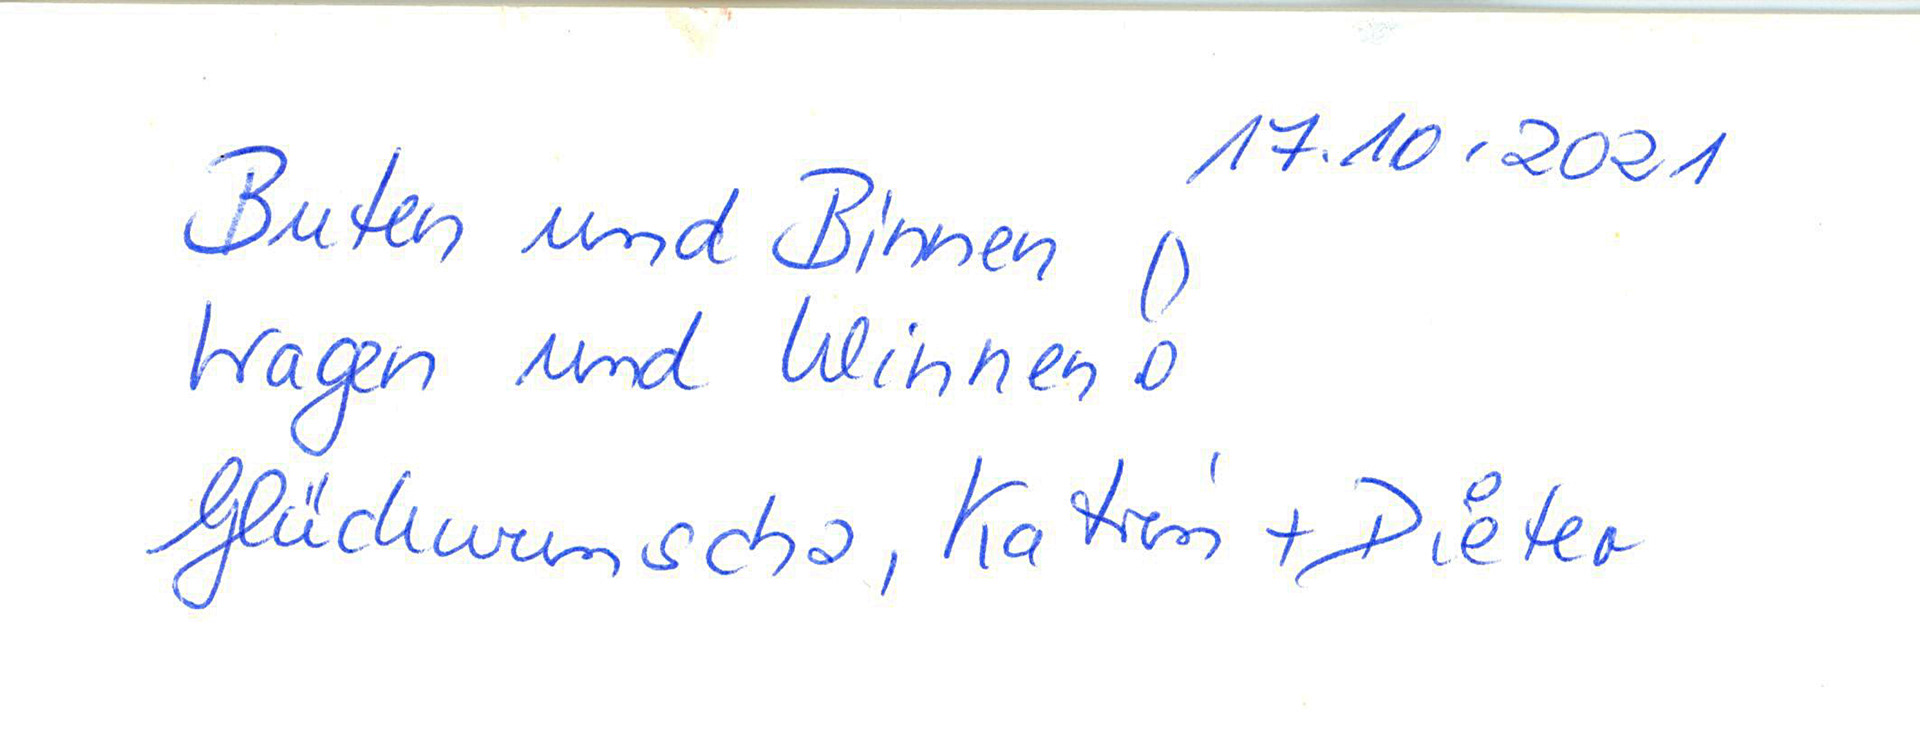 17.10.2021
Buten und Binnen
wagen und Winnen!
Glückwunsch, Katrin + Dieter